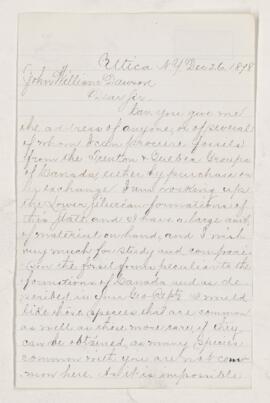 Utica N.Y Dec 26 1878
John William Dawson
Dear Sir
Can you give me
the address of anyone, or of several
of whom I can procure fossils
from the Trenton & Quebec Groups
of Canada, either by purchase or
by exchange. I am working up
the Lower Silurian formations of
this State and I have a large amt,
of material on hand, and I wish
very much for study and compari-
son the fossil forms peculiar to the
formations of Canada and as de-
scribed in your Geo Repts. I would
like those species that are common
as well as those more rare, if they
can be obtained, as many species
common with you are not com-
mon here. As it is impossible